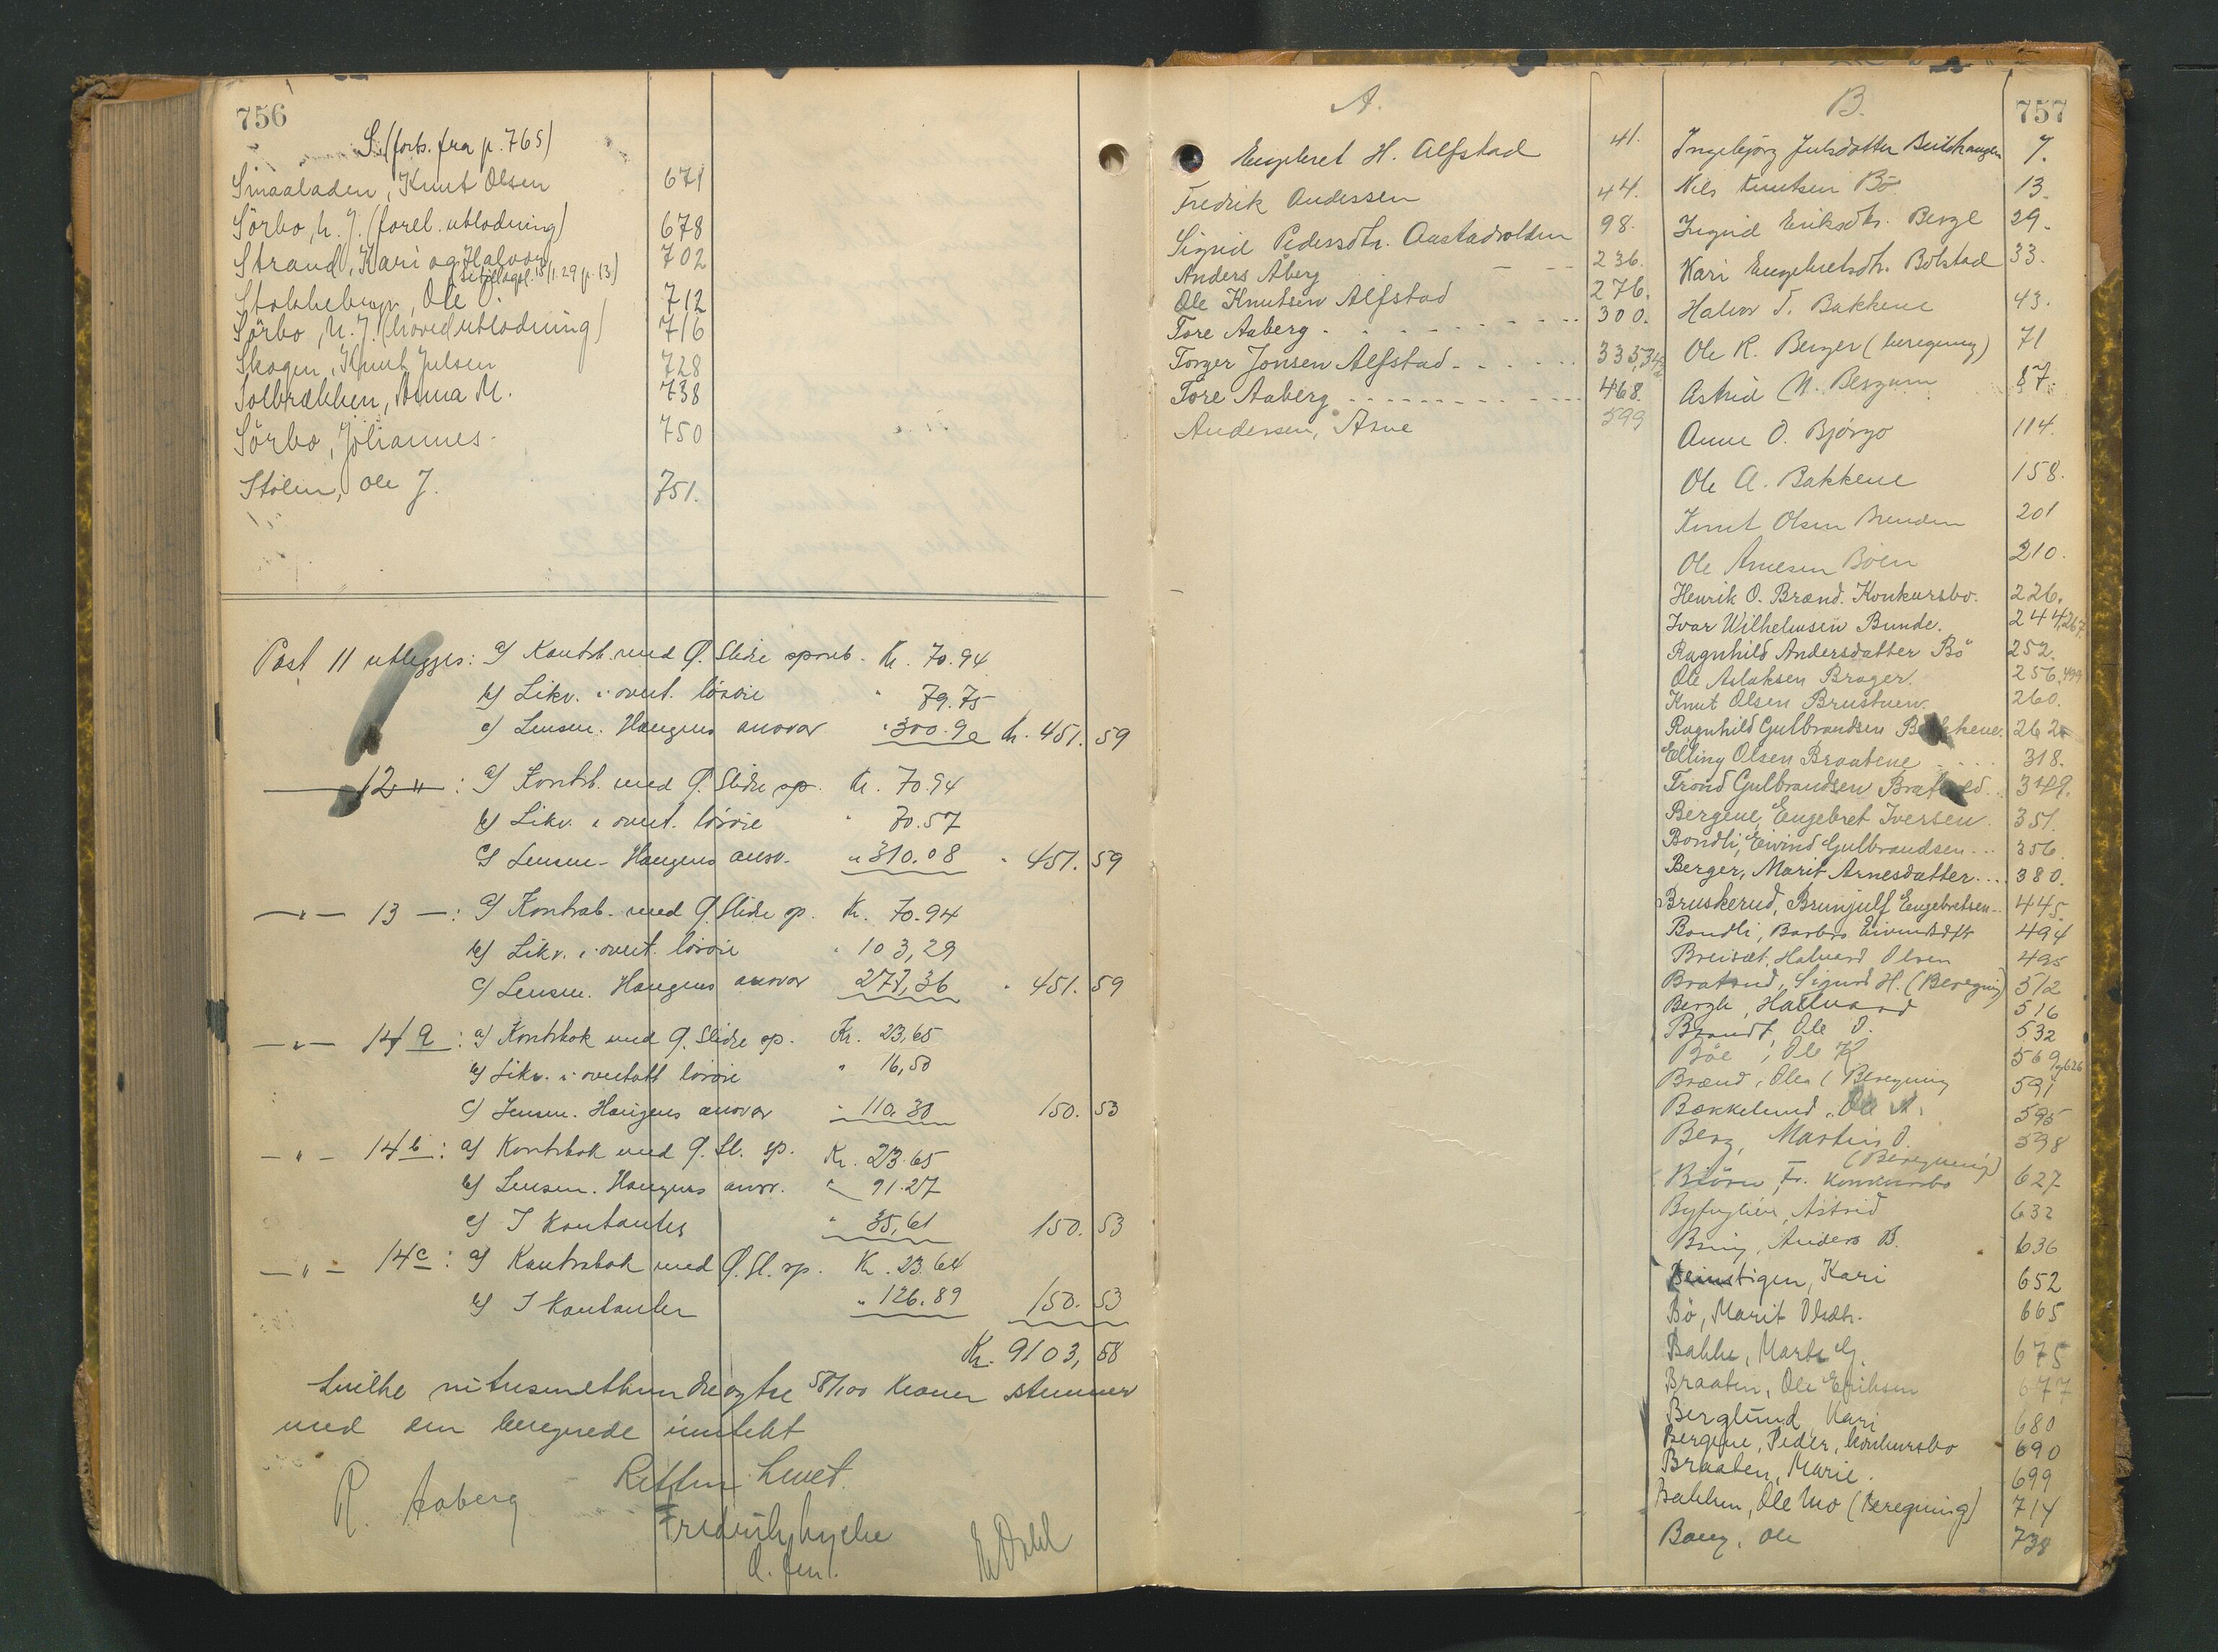 756
S. (forts. fra p. 765)
Smaaladen, Knut Olsen 671
Sörbo, N. J. (forel. utlodning) 678
Strand, Kari og Halvor 702
15/1.29 p. 13)
Ole O. 712
Sörbo, N. J. (hovedutlodning) 716
Skogen, Knut Julsen 728
Solbrækken, Anna M. 738
Sörbo, Johannes 750
Stölen, Ole J. 751.
Post 11 utlegges: a) Kontrb. med Ø. Slidre spareb. Kr. 70.94
b) Likv. i overt. lösöre " 79.75
c) Lensm. Haugens ansvar " 300.90 Kr. 451.59
12 " : a) Kontrb. med Ø. Slidre sp. Kr. 70.94
b) Likv. i overt. lösöre " 70.57
c) Lensm. Haugens ansv. " 310.08 " 451.59
— " — 13 — : a) Kontrab. med Ø. Slidre sp. Kr. 70.94
b) Likv. i overt. lösöre " 103,29
c) Lensm. Haugens ansvar 277,36 " 451.59
— " — 14 a : a) Kontrbok med Ø. Slidre sp. Kr. 23,65
b) Likv. i overtatt lösöre " 16,50
c) Lensm. Haugens ansvar " 110.38 150.53
— " — 14 b : a) Kontrbok med Ø. Sl. sp. Kr. 23.65
b) Lensm. Haugens ansv. " 91.27
c) I kontanter " 35,61 150.53
— " — 14 c : a) Kontrabok med Ø. Sl. sp. Kr. 23.64
b) I kontanter " 126.89 150.53
Kr. 9103,58
hvilke nitusenetthundreogtre 58/100 kroner stemmer
med den beregnede inntekt
Retten hevet.
R. Aaberg
Fredrik Lycke
E. Dahl
A.
Engebret H. Alfstad 41.
Fredrik Andersen 44.
Sigrid Pedersdtr. Aastadvolden 98.
Anders Åberg 236.
Ole Knutsen Alfstad 276.
Tore Aaberg 300.
Torger Jonsen Alfstad 335,
Tore Aaberg 468.
Andersen, Arne 599
B. 757
Ingebjörg Julsdatter 7.
Nils Knutsen Bö 13.
Ingrid Eriksdtr. Berge 29.
Kari Engebretsdtr. Bolstad 33.
Halvor T. Bakkene 43.
Ole K. Berger (beregning) 71
Astrid N. Bergum 87.
Anne O. Björgo 114.
Ole A. Bakkene 158.
Knut Olsen Brenden 201
Ole Arnesen Böen 210.
Henrik O. Brænd. Konkursbo. 226.
Ivar Wilhelmsen Bunde. 244,267.
Ragnhild Andersdatter Bö 252.
Ole Aslaksen Brager. 256,499
Knut Olsen Brustuen. 260.
Ragnhild Gulbrandsen Bakkene. 262
Elling Olsen Braatene 318.
Trond Gulbrandsen 349.
Bergene, Engebret Iversen. 351.
Bondli, Eivind Gulbrandsen 356.
Berger, Marit Arnesdatter 380.
Bruskerud, Brunjulf Engebretsen 445.
Bondli, Barbro Eivindsdtr 494
Breiset, Halvard Olsen 495
Bratrud, Sigurd H. (Beregning) 512
Berge, Hallvard 516
Brandt, Ole O. 532
Böe, Ole K 569,626
Brænd, Olea (Beregning 591
Bækkelund, Ole A. 595
Berg, Martin O. 598
(Beregning)
Björn, Fr. konkursbo 627
Byfuglien, Astrid 632
Anders B. 636
Beinstigen, Kari 652
Bö, Marit Olsdtr. 665
Bakke, Marte G. 675
Braaten, Ole Eriksen 677
Berglund, Kari 680
Bergene, Peder, konkursbo 690
Braaten, Marie. 699
Bakken, Ole Mo (Beregning) 714
Ole 738